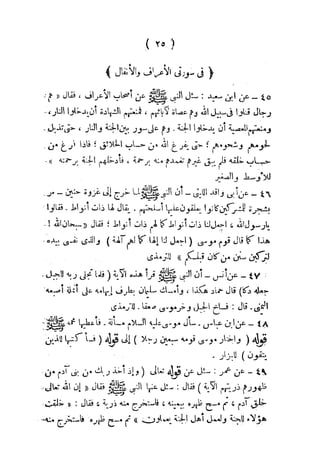 ( ٢٥ )
﴿ فى سورتى الأعراف والأنفال ﴾
٤٥ – عن ابن سعيد : سئل النبى ﷺ عن أصحاب الأعراف ، فقال « هم :
رجال قتلوا فى سبيل الله وهم عصاة لآبائهم ، فمنعتهم الشهادة أن يدخلوا النار ،
ومنعتهم المعصية أن يدخلوا الجنة . وهم على سور بين الجنة والنار ، حتى تذبل
لحومهم وشحومهم ؛ حتى يفرغ الله من حساب الخلائق ؛ فاذا فرغ من
حساب خلقه فلم يبق غيرهم تغمدهم منه برحمة . فأدخلهم الجنة برحمته » .
للأوسط والصغير
٤٦ – عن أبى واقد الليثى – أن النبى ﷺ لما خرج إلى غزوة حنين – مر
بشجرة للمشركين كانوا يعلقون عليها أسلحتهم . يقال لها ذات أنواط . فقالوا
يارسول الله ، اجعل لنا ذات أنواط كما لهم ذات أنواط ؛ فقال « سبحان الله !
هذا كما قال قوم موسى ( اجعل لنا إلها كما لهم آلهة ) والذى نفسى بيده
لتركبن سنن من كان قبلكم » للترمذى
٤٧ – عن أنس – أن النبى ﷺ قرأ هذه الآية ( فلما تجلى ربه للجبل
جعله دكا ) قال حماد هكذا ، وأمسك سليمان بطرف إبهامه على أنملة أصبعه
اليمنى . قال : فساخ الجبل وخر موسى صعقا . للترمذى
٤٨ – عن ابن عباس . سأل موسى عليه السلام مسألة . فأعطيها محمد ﷺ
قوله ( واختار موسى قومه سبعين رجلا ) إلى قوله ( فسأكتبها للذين
يتقون ) للبزار .
٤٩ – عن عمر : سئل عن قوله تعالى ( وإذ أخذ ربك من بنى آدم من
ظهورهم ذريتهم الآية ) فقال : سئل عنها النبى ﷺ فقال « إن الله تعالى
خلق آدم ، ثم مسح ظهره بيمينه ، فاستخرج منه ذرية ، فقال : « خلقت
هؤلاء للجنة وبعمل أهل الجنة يعملون » ثم مسح ظهره فاستخرج منه